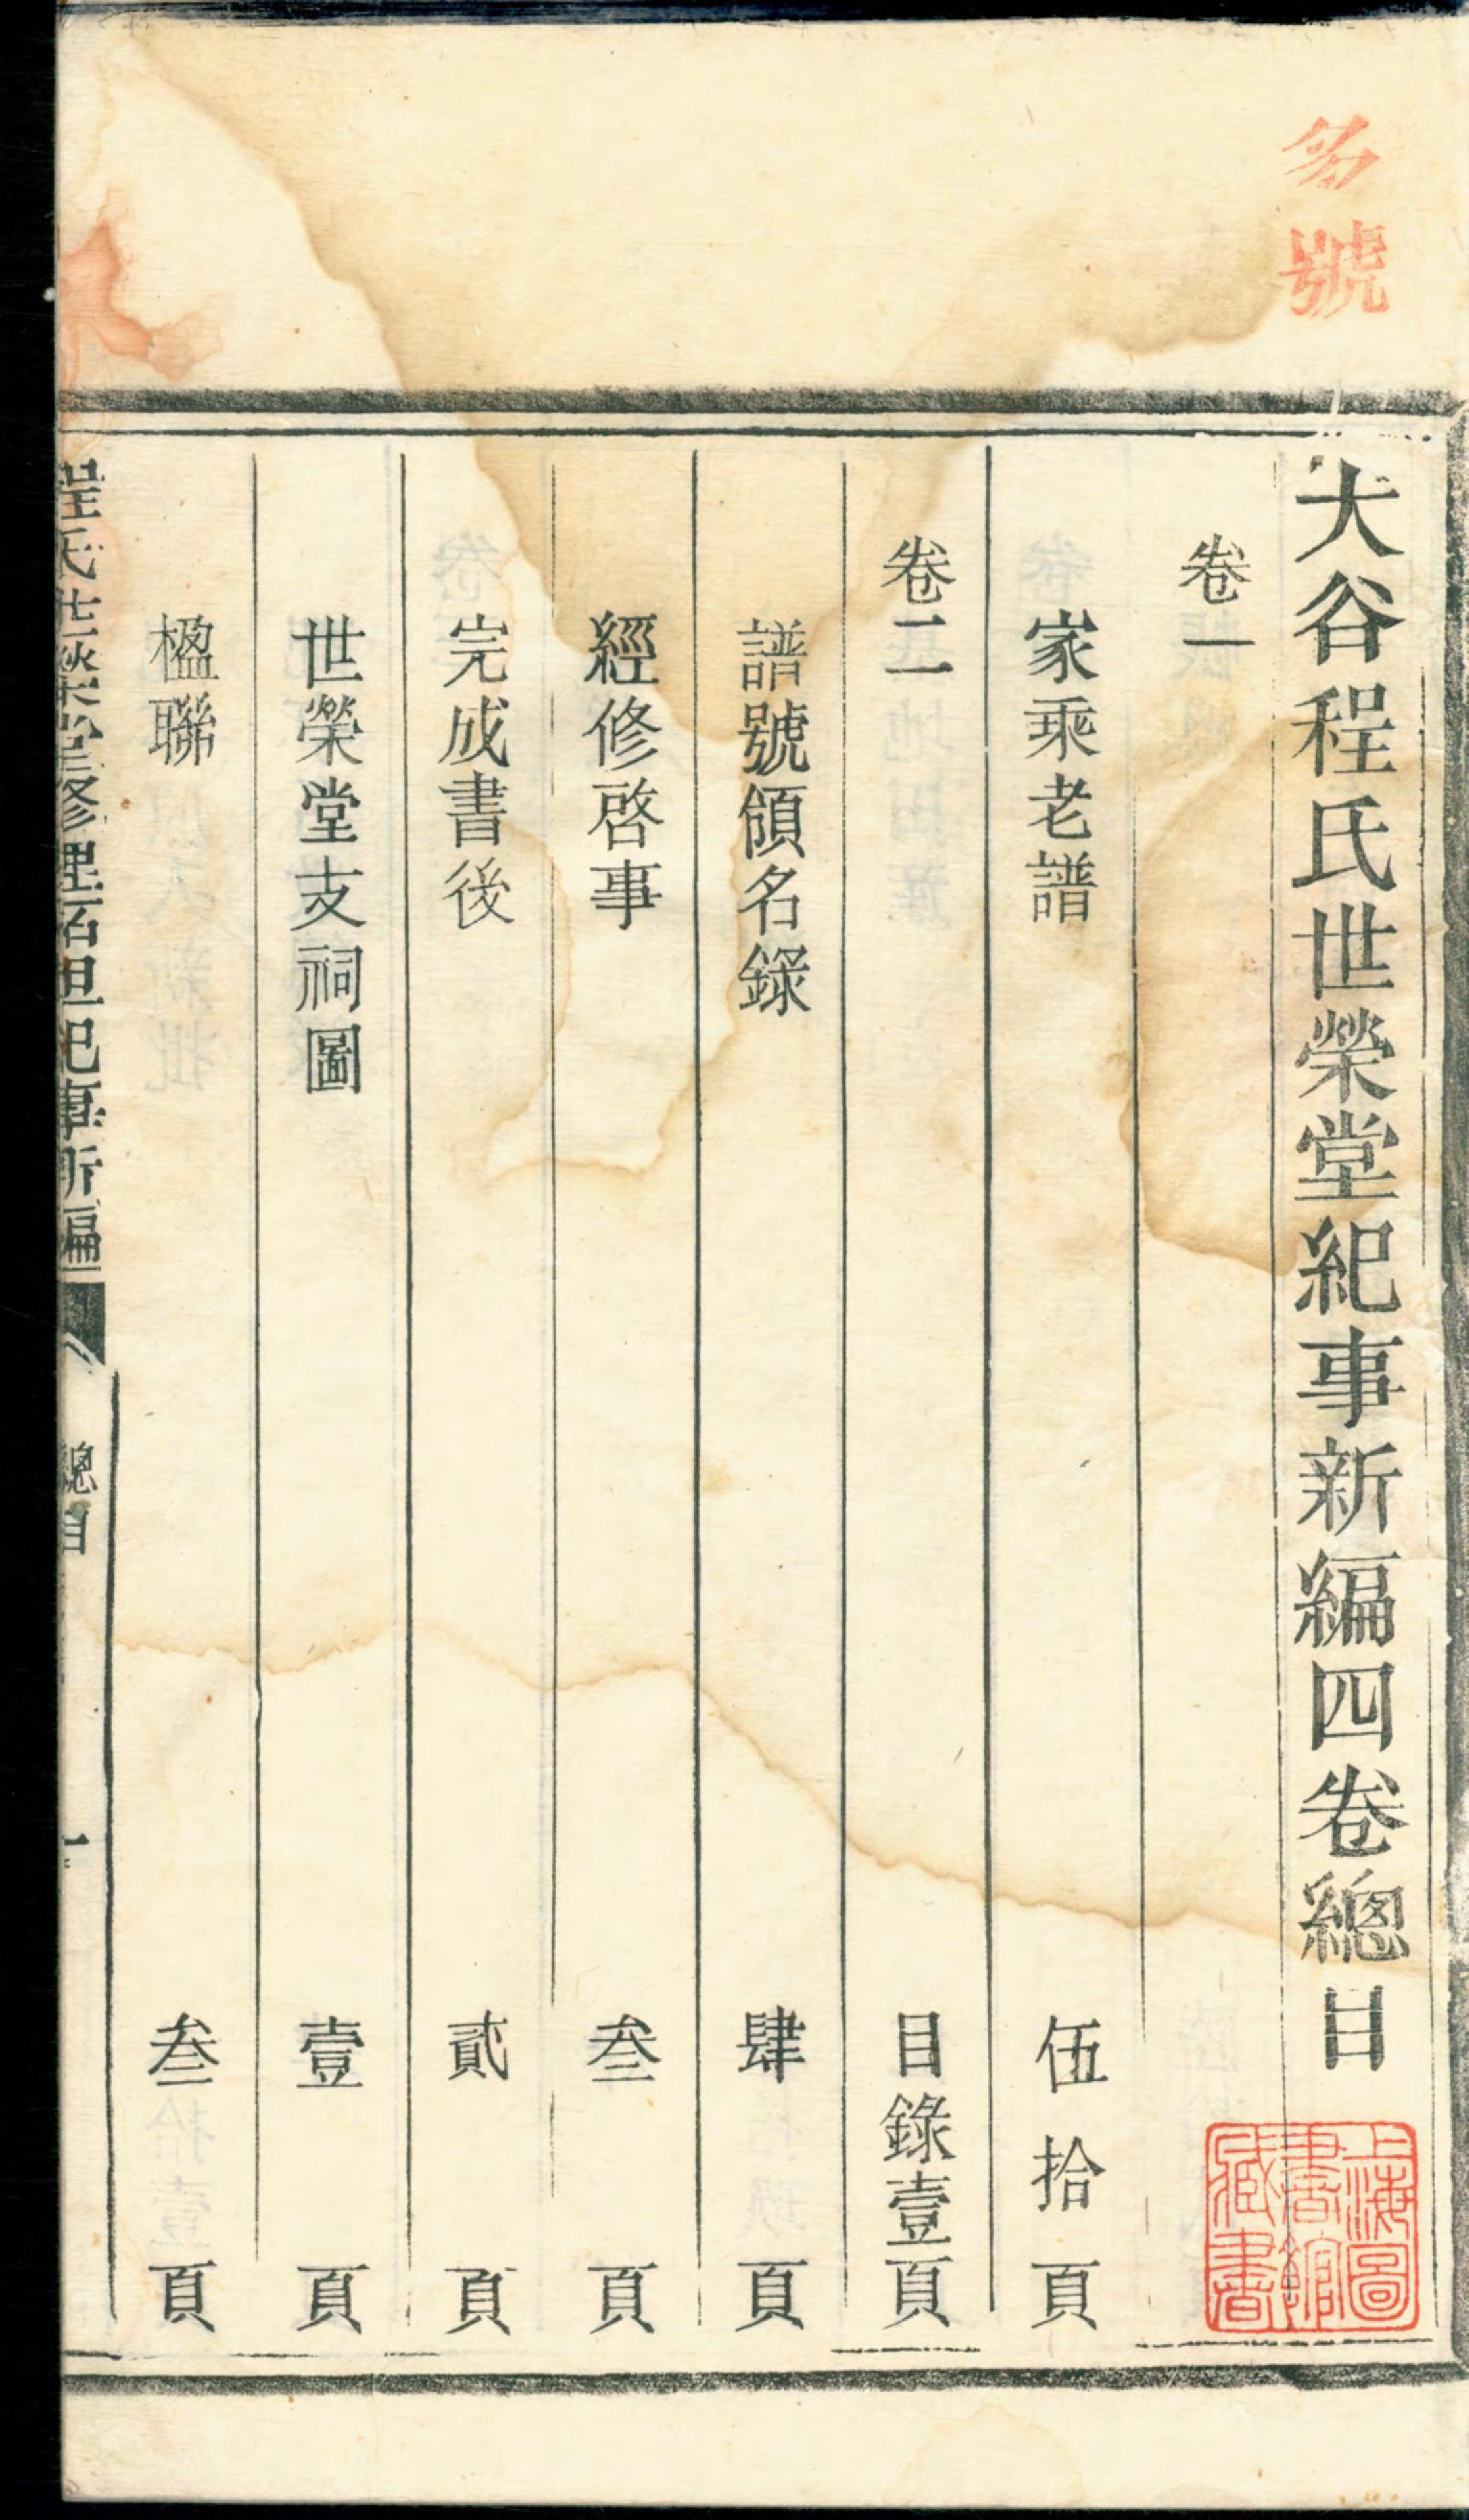 號
大谷程氏世榮堂紀事新編四卷總目
上海圖書館藏書
卷一
家乘老譜 伍拾頁
卷二 目錄壹頁
譜號領名錄 肆頁
經修啓事 叁頁
完成書後 貳頁
世榮堂支祠圖 壹頁
楹聯 叁頁
程氏世榮堂修理石坦紀事新編 總目 一